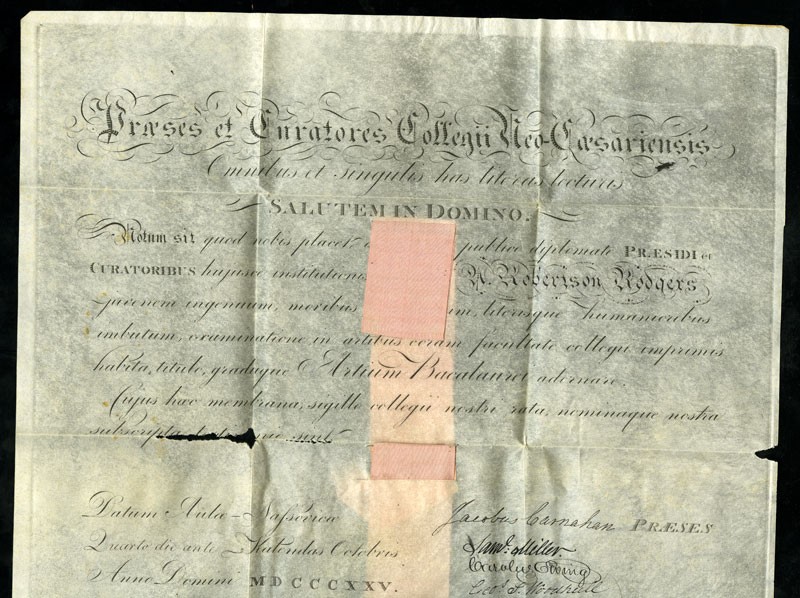 Præses et Curatores Collegii Neo-Cæsariensis
Omnibus et singulis has literas lecturis
SALUTEM IN DOMINO.
Notum sit quod nobis placet publico diplomate PRÆSIDI et
CURATORIBUS hujusce institutionis Robertson Rodgers
juvenem ingenuum, moribus literisque humanioribus
imbutum, examinatione in artibus coram facultate collegii imprimis
habita, titulo, graduque Artium Baccalaurei adornare.
Cujus hæc membrana, sigillo collegii nostri rata, nominaque nostra
subscripta
Datum Aulæ-Nassovicæ
Quarto die ante Kalendas Octobris
Anno Domini MDCCCXXV.
Jacobus Carnahan PRÆSES
Saml. Miller
Carolus
Geo. S. Woodhull